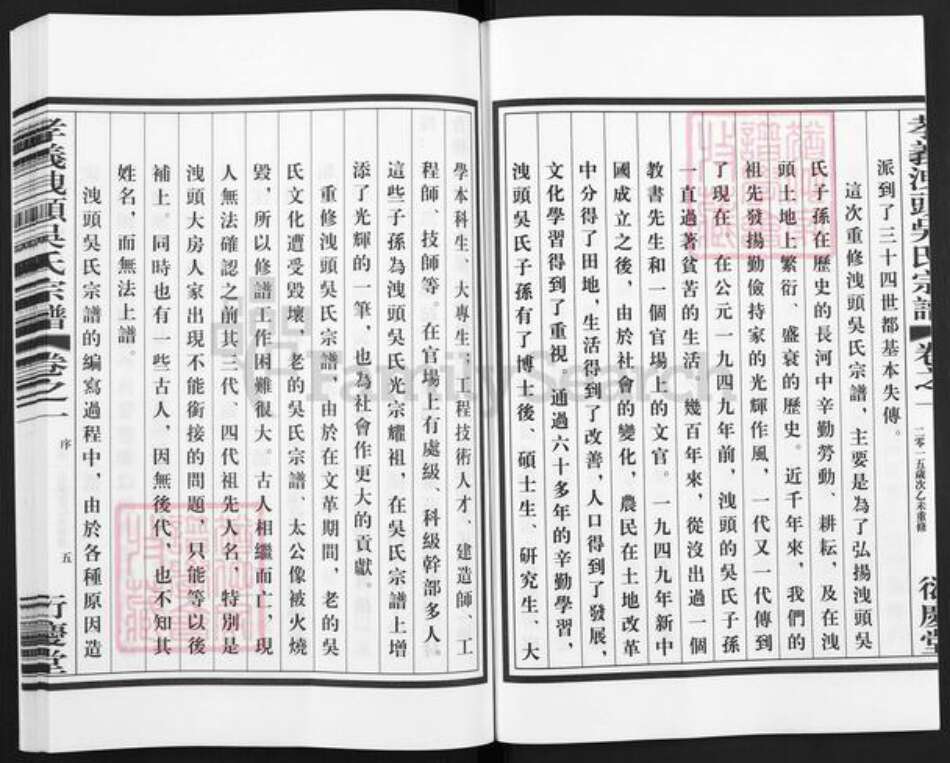 孝義洩頭吳氏宗譜
卷之一
二零一五歲次乙未重修
衍慶堂
派到了三十四世都基本失傳。
這次重修洩頭吳氏宗譜，主要是為了弘揚洩頭吳
氏子孫在歷史的長河中辛勤勞動、耕耘，及在洩
頭土地上繁衍、盛衰的歷史。近千年來，我們的
祖先發揚勤儉持家的光輝作風，一代又一代傳到
了現在，在公元一九四九年前，洩頭的吳氏子孫
一直過著貧苦的生活，幾百年來，從沒出過一個
教書先生和一個官場上的文官。一九四九年新中
國成立之後，由於社會的變化，農民在土地改革
中分得了田地，生活得到了改善，人口得到了發展，
文化學習得到了重視，通過六十多年的辛勤學習，
洩頭吳氏子孫有了博士後、碩士生、研究生、大
學本科生、大專生、工程技術人才、建造師、工
程師、技師等。在官場上有處級、科級幹部多人，
這些子孫為洩頭吳氏光宗耀祖，在吳氏宗譜上增
添了光輝的一筆，也為社會作更大的貢獻。
重修洩頭吳氏宗譜，由於在文革期間，老的吳
氏文化遭受毀壞，老的吳氏宗譜、太公像被火燒
毀，所以修譜工作困難很大。古人相繼而亡，現
人無法確認之前其三代、四代祖先人名，特別是
洩頭大房人家出現不能銜接的問題，只能等以後
補上。同時也有一些古人，因無後代，也不知其
姓名，而無法上譜。
洩頭吳氏宗譜的編寫過程中，由於各種原因造
孝義洩頭吳氏宗譜
卷之一
序
五
衍慶堂
FamilySearch